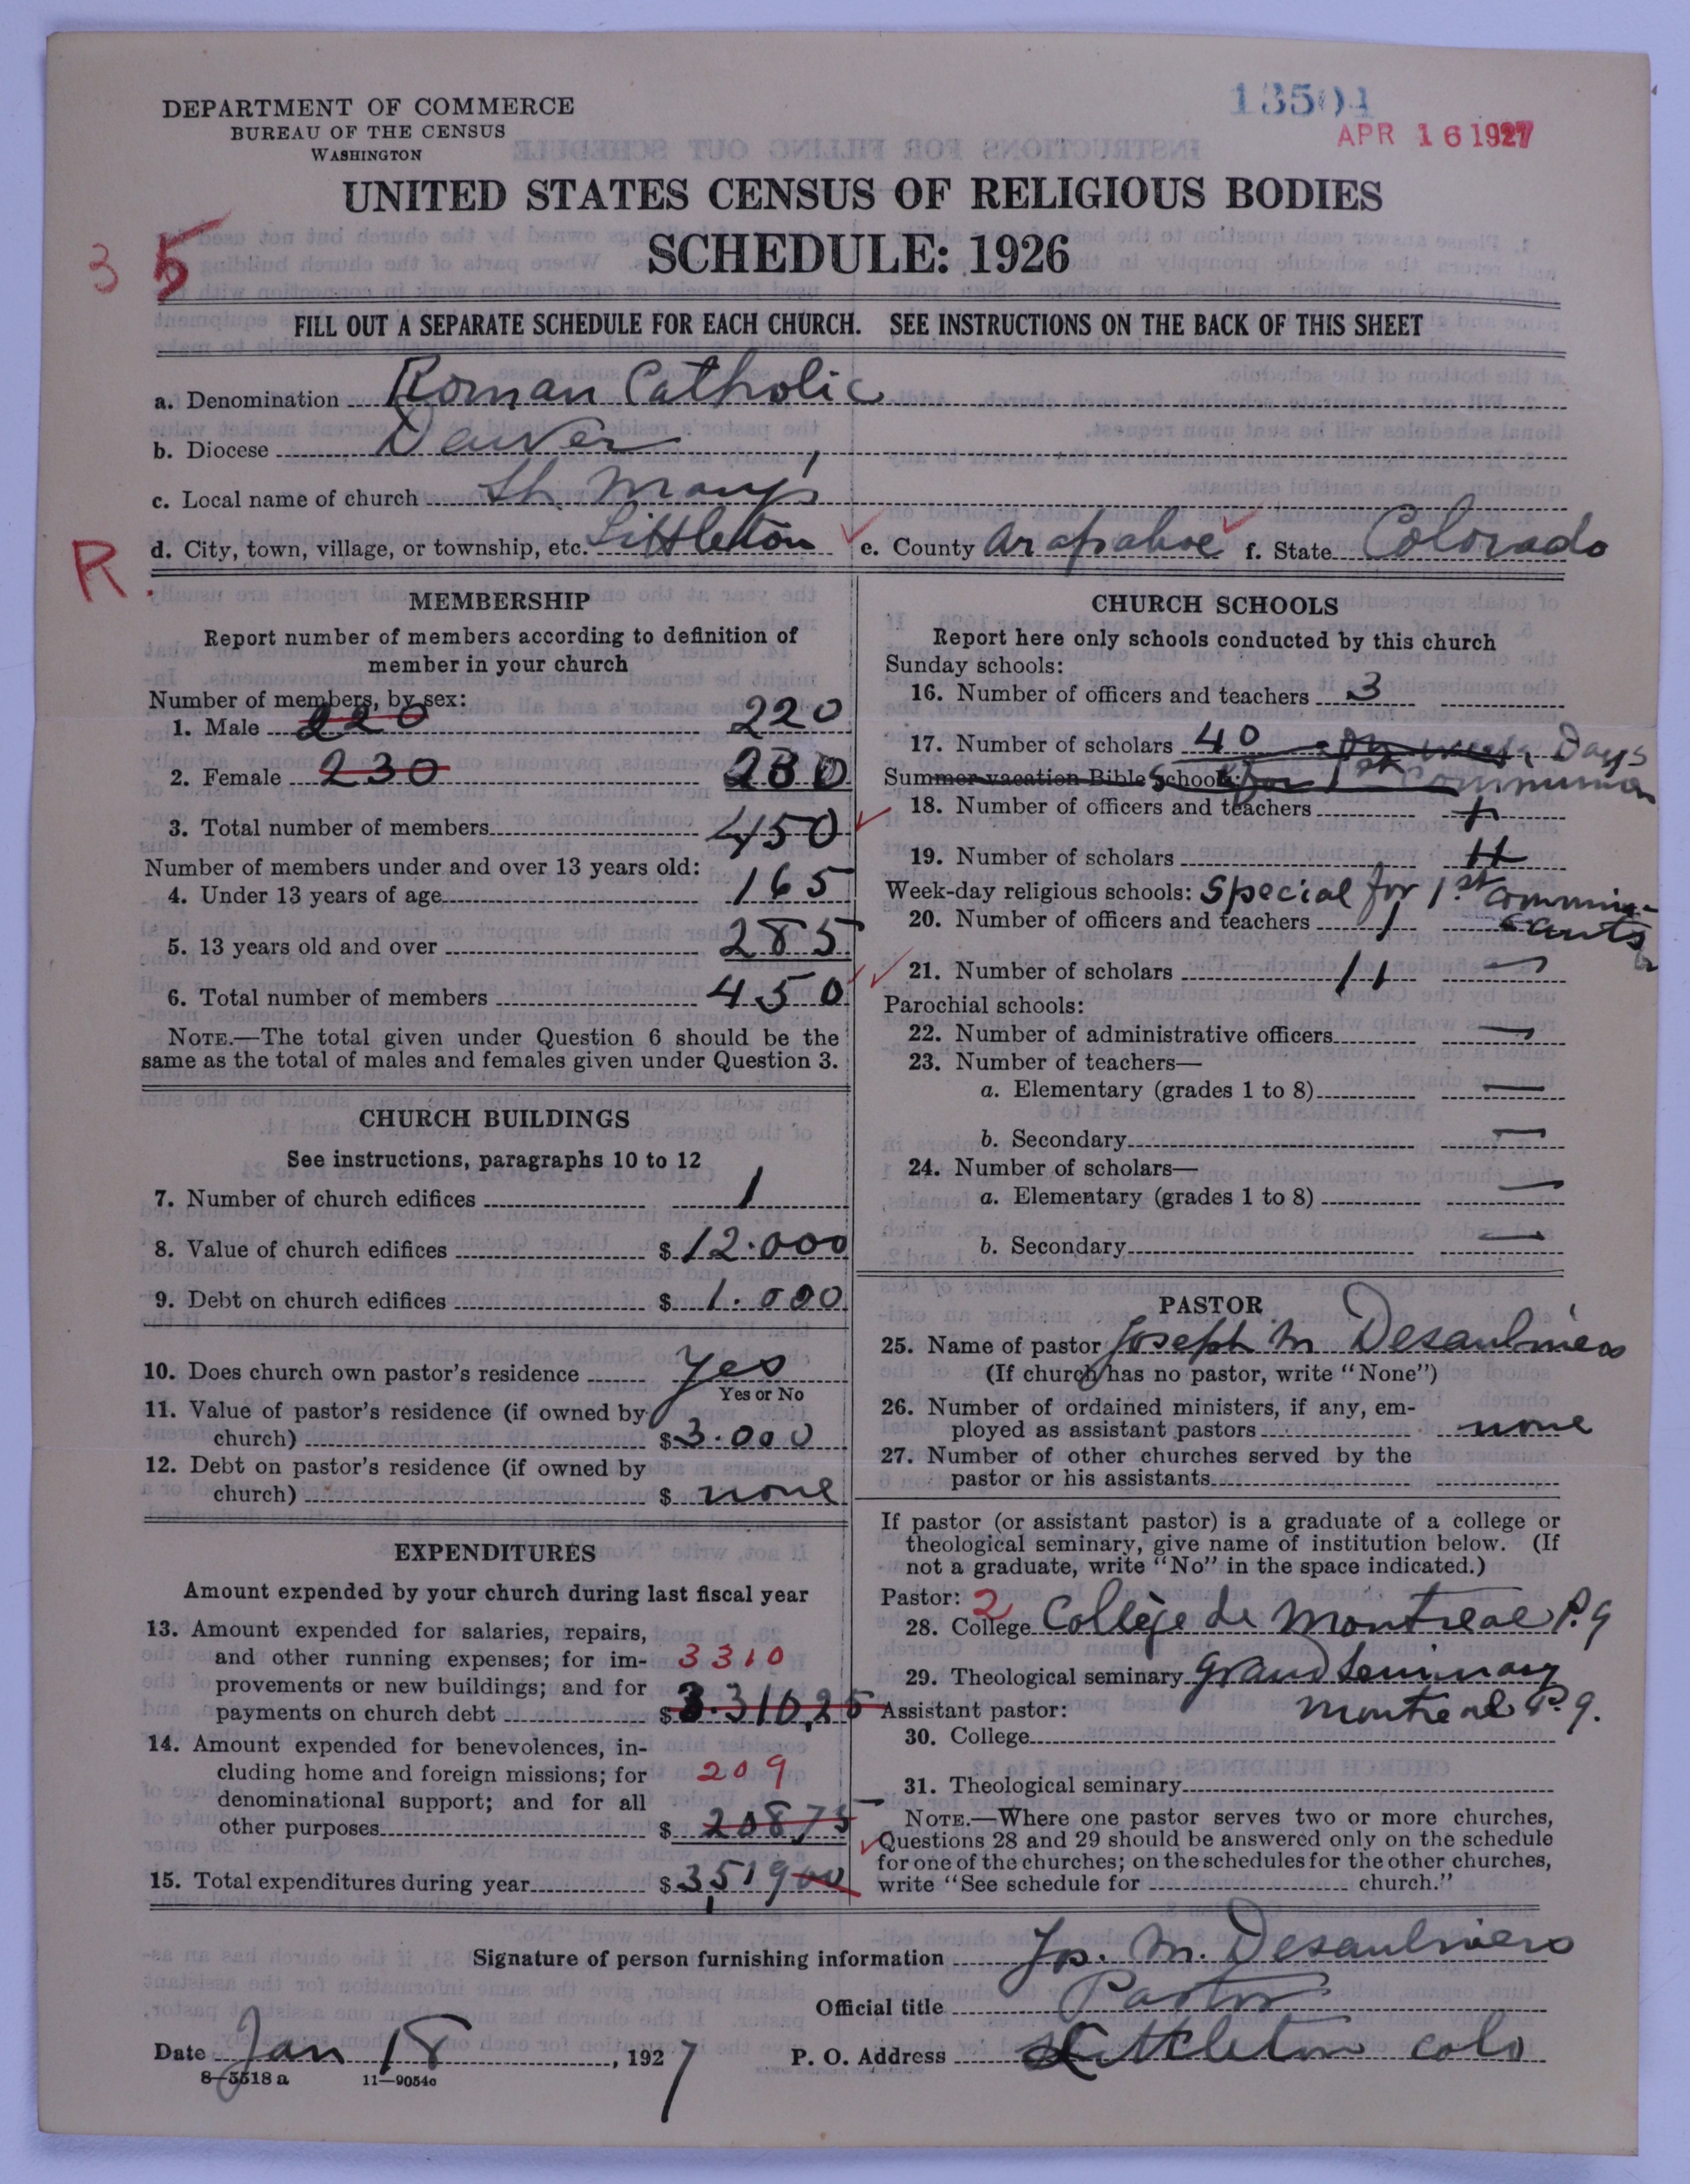 DEPARTMENT OF COMMERCE
BUREAU OF THE CENSUS
WASHINGTON
13504
APR 16 1927
UNITED STATES CENSUS OF RELIGIOUS BODIES
SCHEDULE: 1926
3 5
FILL OUT A SEPARATE SCHEDULE FOR EACH CHURCH. SEE INSTRUCTIONS ON THE BACK OF THIS SHEET
a. Denomination Roman Catholic
b. Diocese Denver
c. Local name of church St. Mary's
d. City, town, village, or township, etc. Littleton e. County Arapahoe f. State Colorado
R.
MEMBERSHIP
Report number of members according to definition of
member in your church
Number of members, by sex:
1. Male 220 220
2. Female 230 230
3. Total number of members 450
Number of members under and over 13 years old:
4. Under 13 years of age 165
5. 13 years old and over 285
6. Total number of members 450
NOTE.—The total given under Question 6 should be the
same as the total of males and females given under Question 3.
CHURCH BUILDINGS
See instructions, paragraphs 10 to 12
7. Number of church edifices 1
8. Value of church edifices $ 12.000
9. Debt on church edifices $ 1.000
10. Does church own pastor's residence yes
Yes or No
11. Value of pastor's residence (if owned by
church) $ 3.000
12. Debt on pastor's residence (if owned by
church) $ none
EXPENDITURES
Amount expended by your church during last fiscal year
13. Amount expended for salaries, repairs,
and other running expenses; for im- 3310
provements or new buildings; and for
payments on church debt $ 3.310,25
14. Amount expended for benevolences, in-
cluding home and foreign missions; for 209
denominational support; and for all
other purposes $ 208 75
15. Total expenditures during year $ 3,519 00
CHURCH SCHOOLS
Report here only schools conducted by this church
Sunday schools:
16. Number of officers and teachers 3
17. Number of scholars 40 on week Days
Summer vacation Bible schools: for 1st Communion
18. Number of officers and teachers
19. Number of scholars 11
Week-day religious schools: Special for 1st communi-
20. Number of officers and teachers 1 cants
21. Number of scholars 11 —
Parochial schools:
22. Number of administrative officers —
23. Number of teachers—
a. Elementary (grades 1 to 8) —
b. Secondary —
24. Number of scholars—
a. Elementary (grades 1 to 8) —
b. Secondary —
PASTOR
25. Name of pastor Joseph M Desaulniers
(If church has no pastor, write "None")
26. Number of ordained ministers, if any, em-
ployed as assistant pastors none
27. Number of other churches served by the
pastor or his assistants
If pastor (or assistant pastor) is a graduate of a college or
theological seminary, give name of institution below. (If
not a graduate, write "No" in the space indicated.)
Pastor: 2
28. College Collège de Montreal P.Q
29. Theological seminary Grand Seminary
Assistant pastor: Montreal P.Q.
30. College
31. Theological seminary
NOTE.—Where one pastor serves two or more churches,
Questions 28 and 29 should be answered only on the schedule
for one of the churches; on the schedules for the other churches,
write "See schedule for church."
Signature of person furnishing information Jos. M. Desaulniers
Official title Pastor
Date Jan 18, 1927 P. O. Address Littleton Colo
8—5518 a 11—9054c